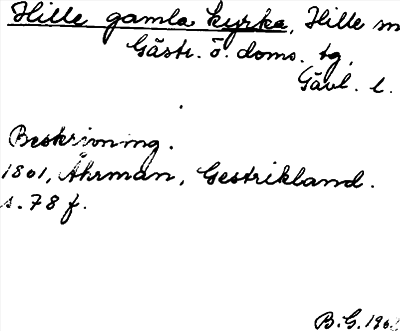 Hille gamla kyrka, Hille sn
Gästr. ö. doms. tg,
Gävl. l.
Beskrivning.
1861, Åhrman, Gestrikland.
s. 78 f.
B.G.